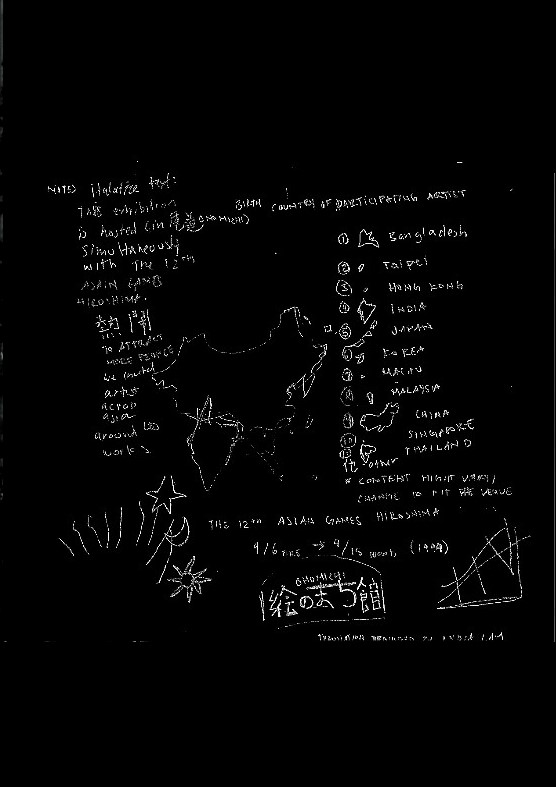 NOTES
Italatize text:
This exhibition
is hosted (in 尾道 ONOMICHI)
simultaneously
with the 12th
ASAIN GAMES
HIROSHIMA.
TO ATTRACT
MORE PEOPLE
we invited
artist
across
asia
around
works
BIRTH COUNTRY OF PARTICIPATING ARTIST
① Bangladesh
② Taipei
③ HONG KONG
④ INDIA
⑤ JAPAN
⑥ KOREA
⑦ MACAU
⑧ MALAYSIA
⑨ CHINA
⑩ SINGAPORE
⑪ THAILAND
他 other
* CONTENT MIGHT VARY/
CHANGE TO FIT THE VENUE
THE 12TH ASIAN GAMES HIROSHIMA
(1994)
ONOMICHI
絵のまち館